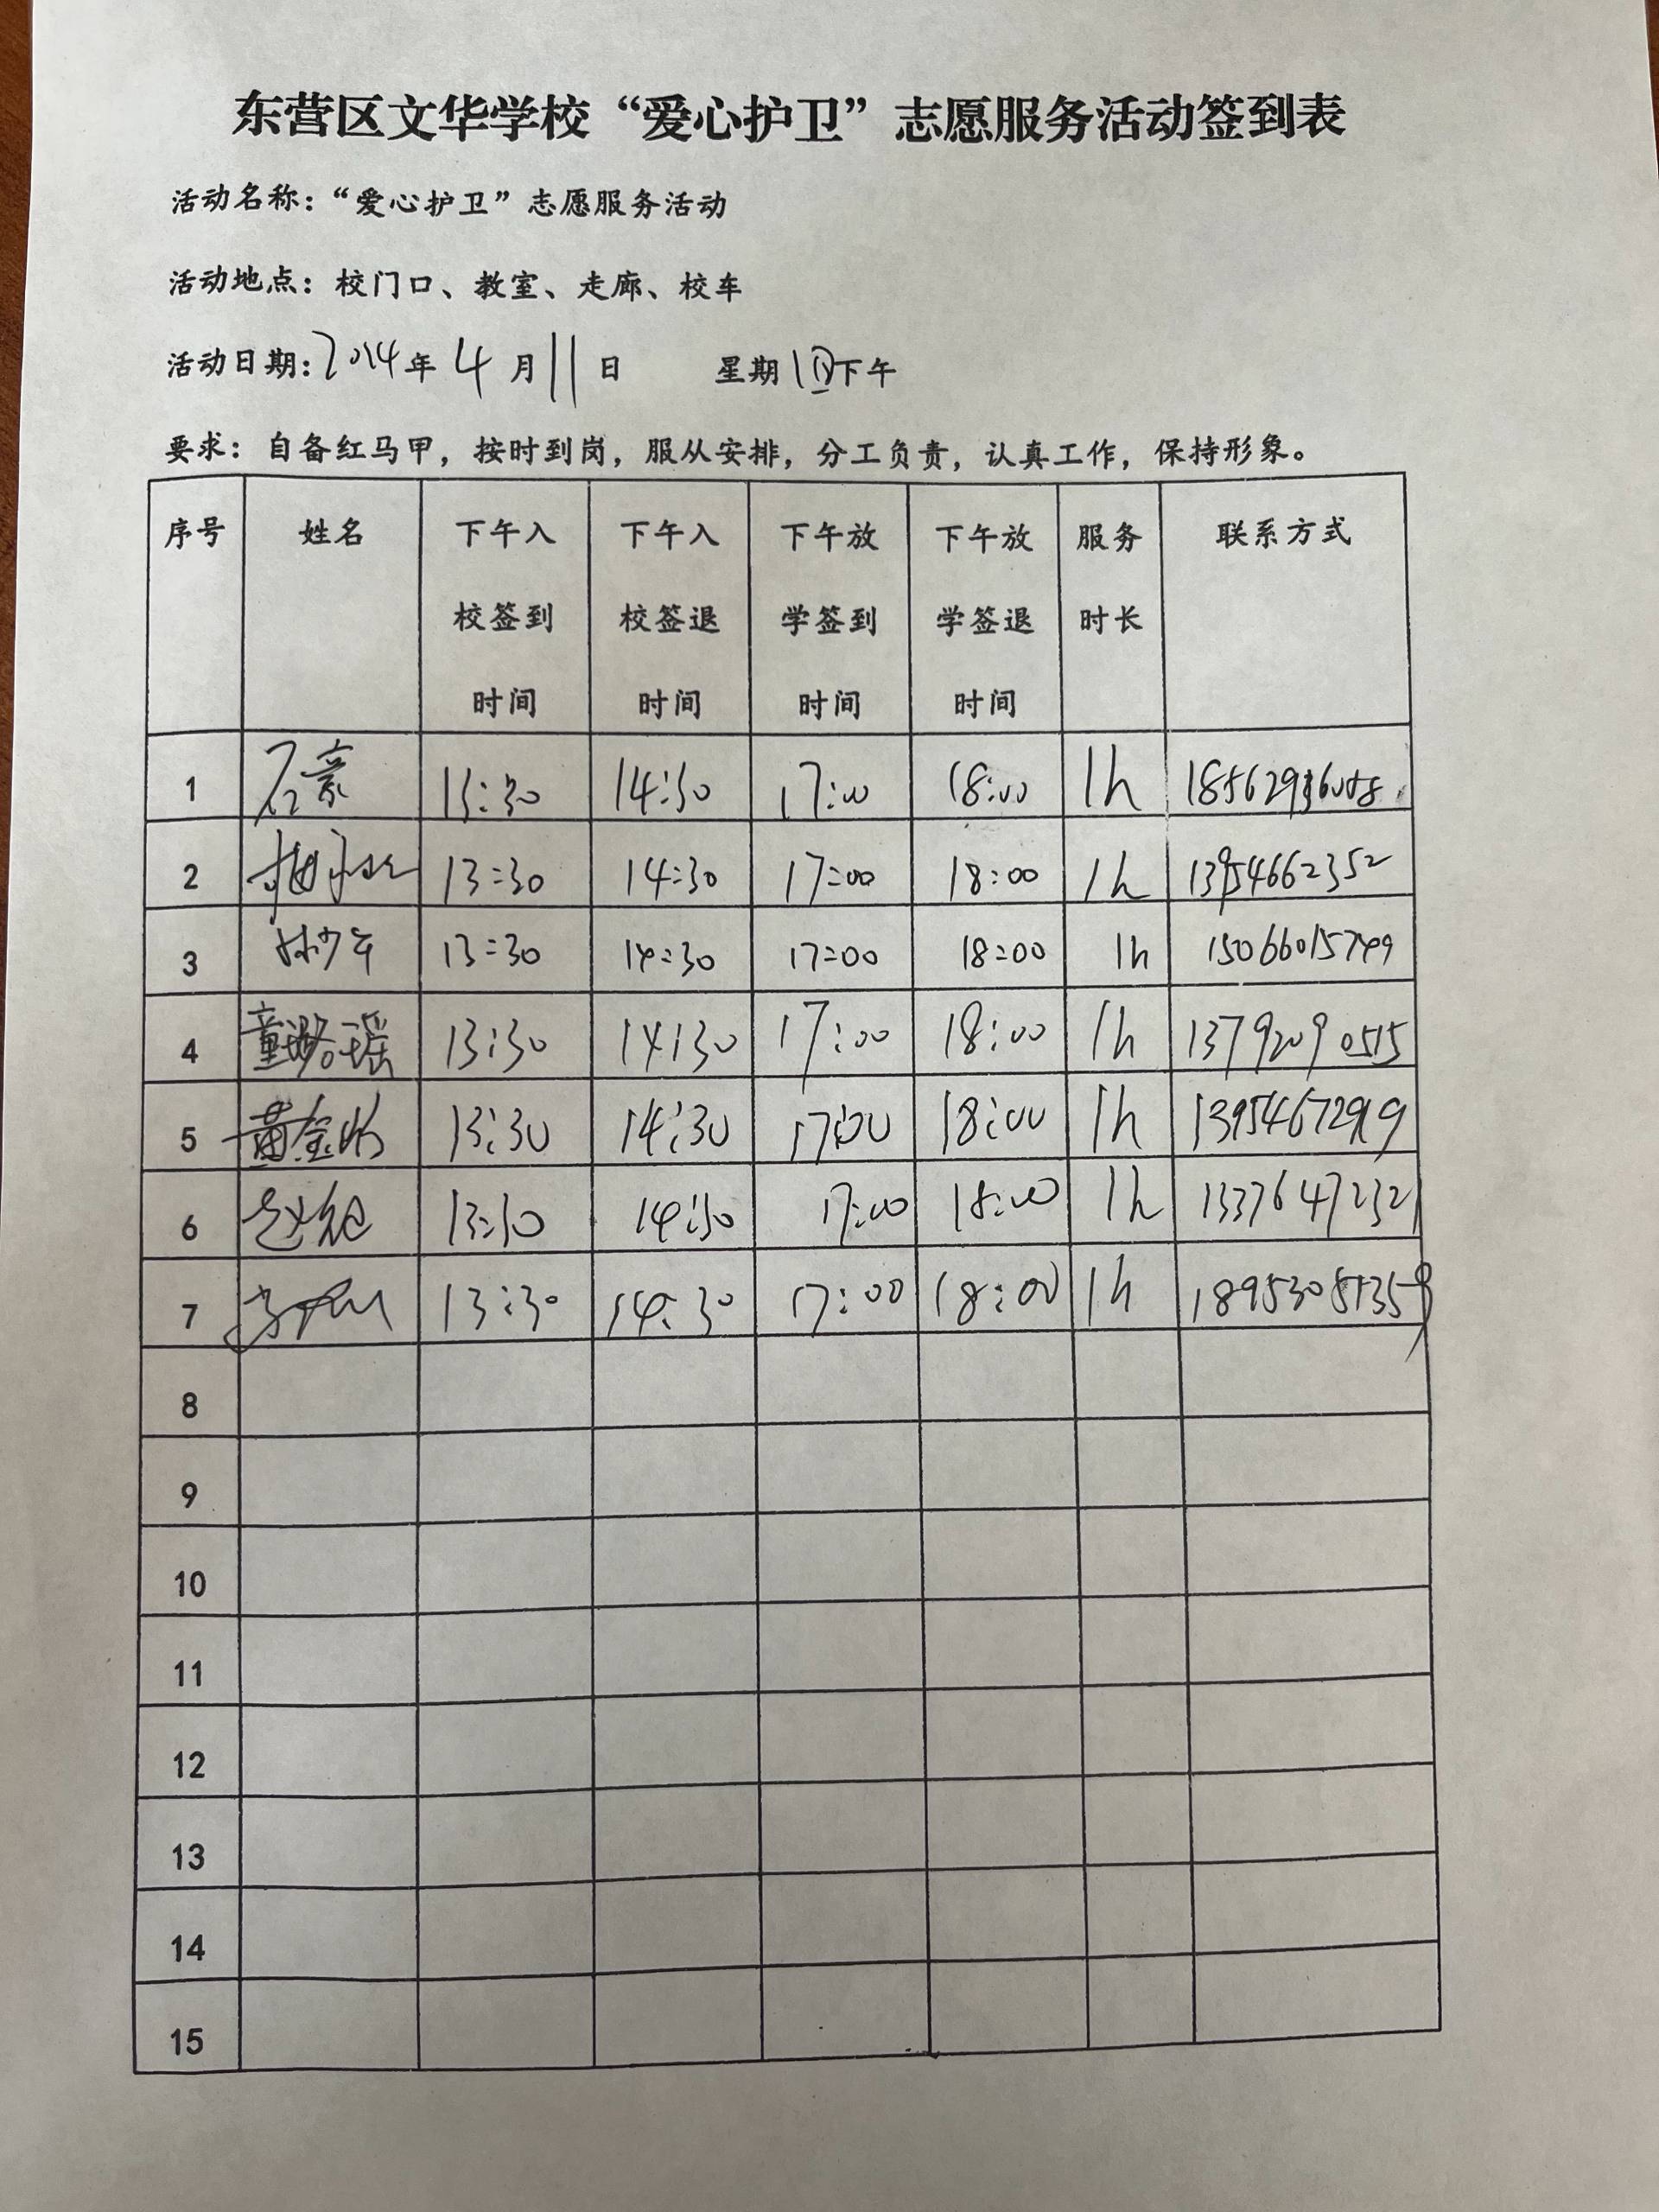 东营区文华学校“爱心护卫”志愿服务活动签到表
活动名称：“爱心护卫”志愿服务活动
活动地点：校门口、教室、走廊、校车
活动日期：2024年4月11日 星期四下午
要求：自备红马甲，按时到岗，服从安排，分工负责，认真工作，保持形象。
序号 姓名 下午入校签到时间 下午入校签退时间 下午放学签到时间 下午放学签退时间 服务时长 联系方式
1 石豪 13:30 14:30 17:00 18:00 1h
2 13:30 14:30 17:00 18:00 1h 13954662352
3 林少军 13:30 14:30 17:00 18:00 1h 15066015749
4 童潞瑶 13:30 14:30 17:00 18:00 1h 13792090515
5 13:30 14:30 17:00 18:00 1h 13954672919
6 13:30 14:30 17:00 18:00 1h 13376472321
7 13:30 14:30 17:00 18:00 1h 18953051359
8
9
10
11
12
13
14
15